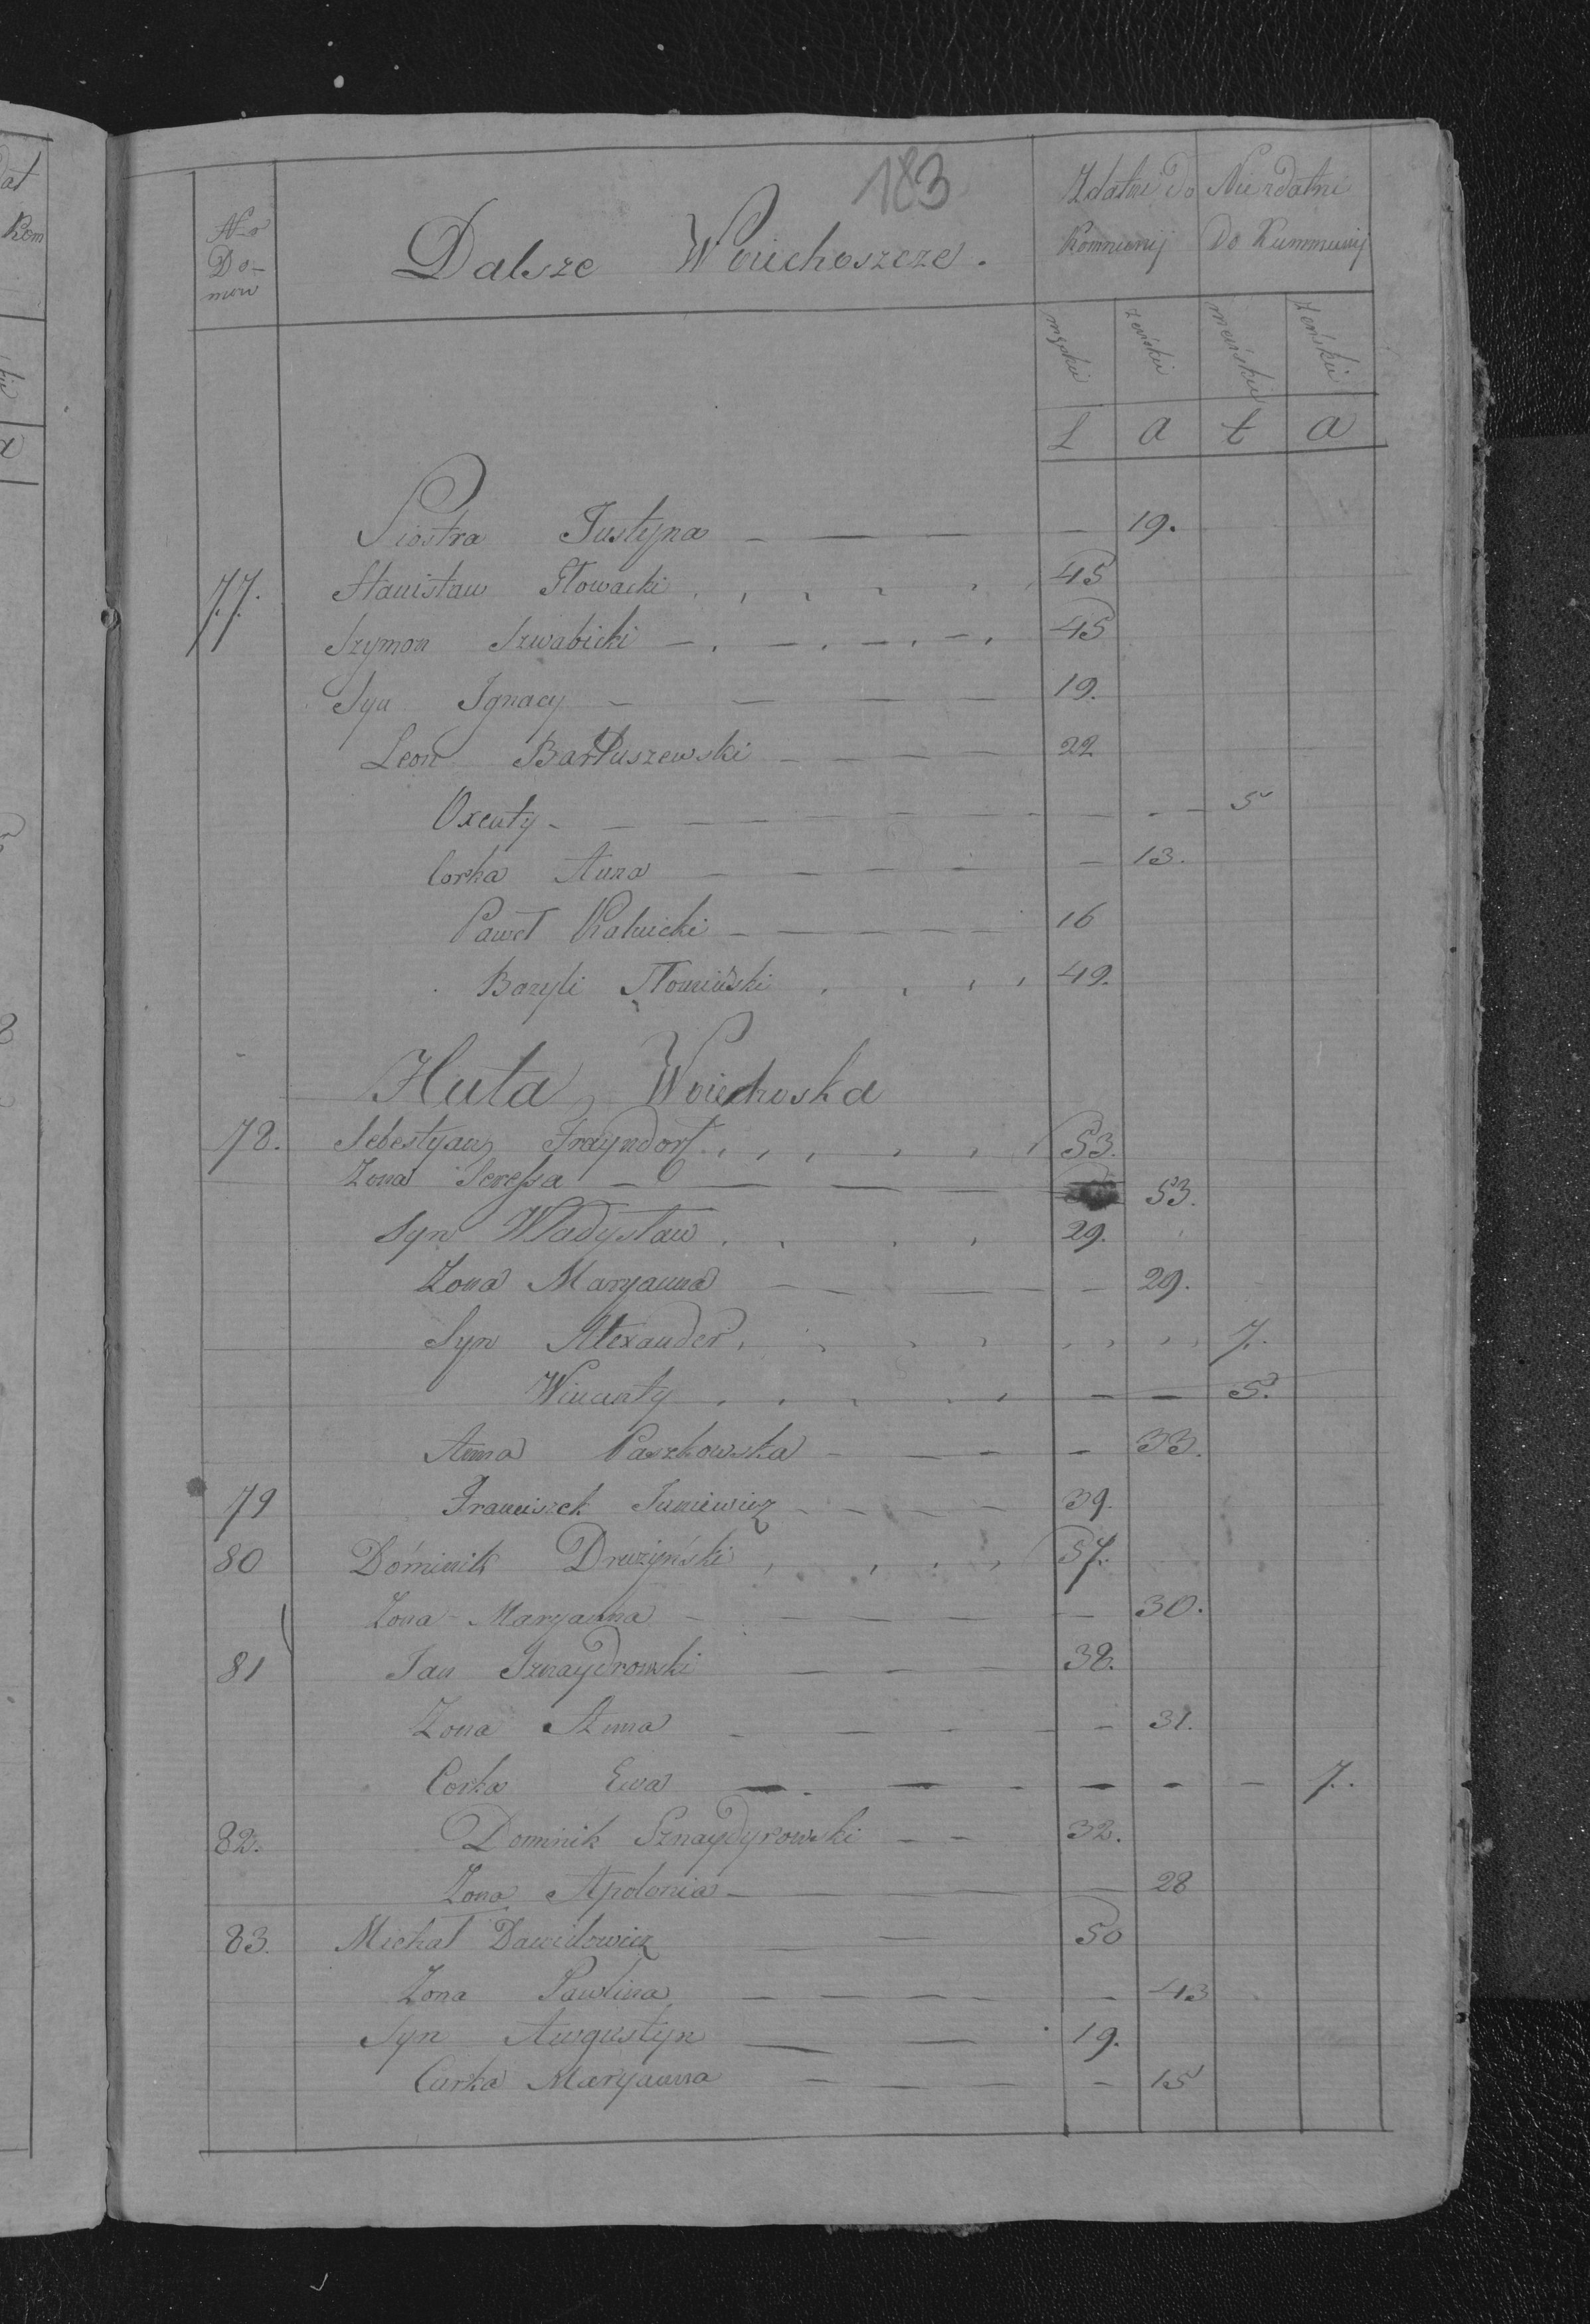 183
No Do-mow
Dalsze Woiechoszcze.
Zdatni do Kommunij
Niezdatni Do Kummunij
męskie żeńskie męńskie żeńskie
L a t a
Siostra Justyna — — — — 19.
77. Stanisław Słowacki 45
Szymon Szwabicki 45
Syn Ignacy — — — — 19.
Leon Bartuszewski — — — 22
Oxenty — — — — — — — 5
Corka Anna — — — — — — 13.
Paweł 16
Bazyli Słomiński 49.
Huta Woiechoska
78. Sebestyan Frayndorf 53.
Zona Teressa — — — — 53.
Syn Władysław 29.
Zona Maryanna — — — — 29.
Syn Alexander 7.
Wincenty — — 5.
Anna Paszkowska — — — — 33.
79 Franciszek Juniewicz — — — — 39.
80 Dominik Drużyński 57.
Zona Maryanna — — — — — 30.
81 Jan Sznaydrowski — — — 38.
Zona Anna — — — — — 31.
Corka Ewa — — — — — — 7.
82. Dominik Sznaydyrowski — — 32.
Zona Apolonia — — — — 28
83. Michał Dawidowicz — — 50
Zona Pawlina — — — — — 43
Syn Awgustyn — — 19.
Curka Maryanna — — — — — 15